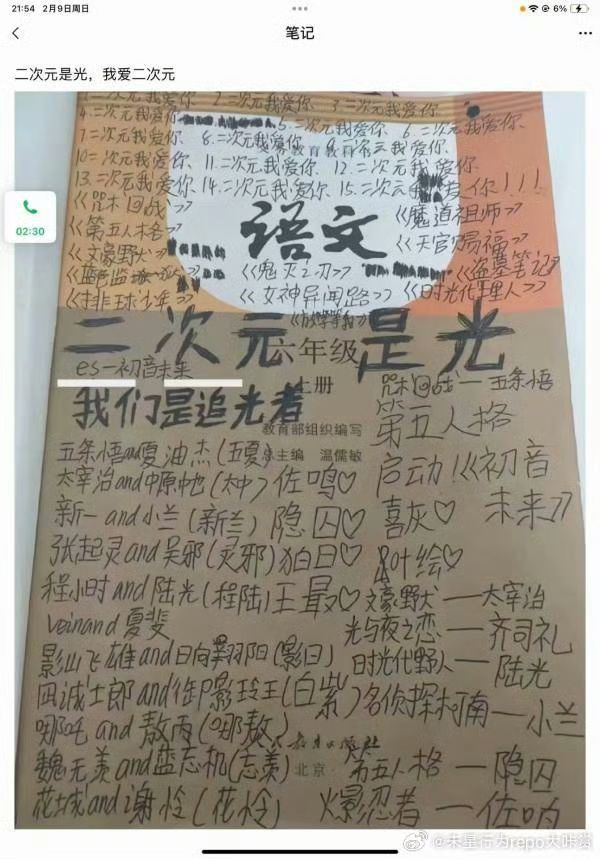 21:54 2月9日周日
6%
笔记
二次元是光，我爱二次元
02:30
1.二次元我爱你、2.二次元我爱你、3.二次元我爱你、
4.二次元我爱你、5.二次元我爱你、6.二次元我爱你、
7.二次元我爱你、8.二次元我爱你、9.二次元我爱你、
10.二次元我爱你、11.二次元我爱你、12.二次元我爱你、
13.二次元我爱你、14.二次元我爱你、15.二次元我爱你!!!
《咒术回战》
《魔道祖师》
《第五人格》
语文
《天官赐福》
《文豪野犬》
《鬼灭之刃》
《盗墓笔记》
《蓝色监狱》
《女神异闻路》
《时光代理人》
《排球少年》
二次元是光
六年级
上册
es—初音未来
咒术回战—五条悟
我们是追光者
第五人格
教育部组织编写
总主编 温儒敏
启动!《初音未来》
五条悟and夏油杰(五夏)
太宰治and中原中也(太中)佐鸣♡
新一and小兰(新兰)隐囚♡
喜灰♡
张起灵and吴邪(灵邪)狛日♡
程小时and陆光(程陆)王最♡
文豪野犬—太宰治
Veinand夏斐
光与夜之恋—齐司礼
影山飞雄and日向翔阳(影日)
时光代野人—陆光
四诚士郎and御影玲王(白紫)
名侦探柯南—小兰
哪吒and敖丙(哪敖)
魏无羡and蓝忘机(忘羡)
北京
第五人格—隐囚
花城and谢怜(花怜)
火影忍者—佐鸣
@未星行为repo大咔赏